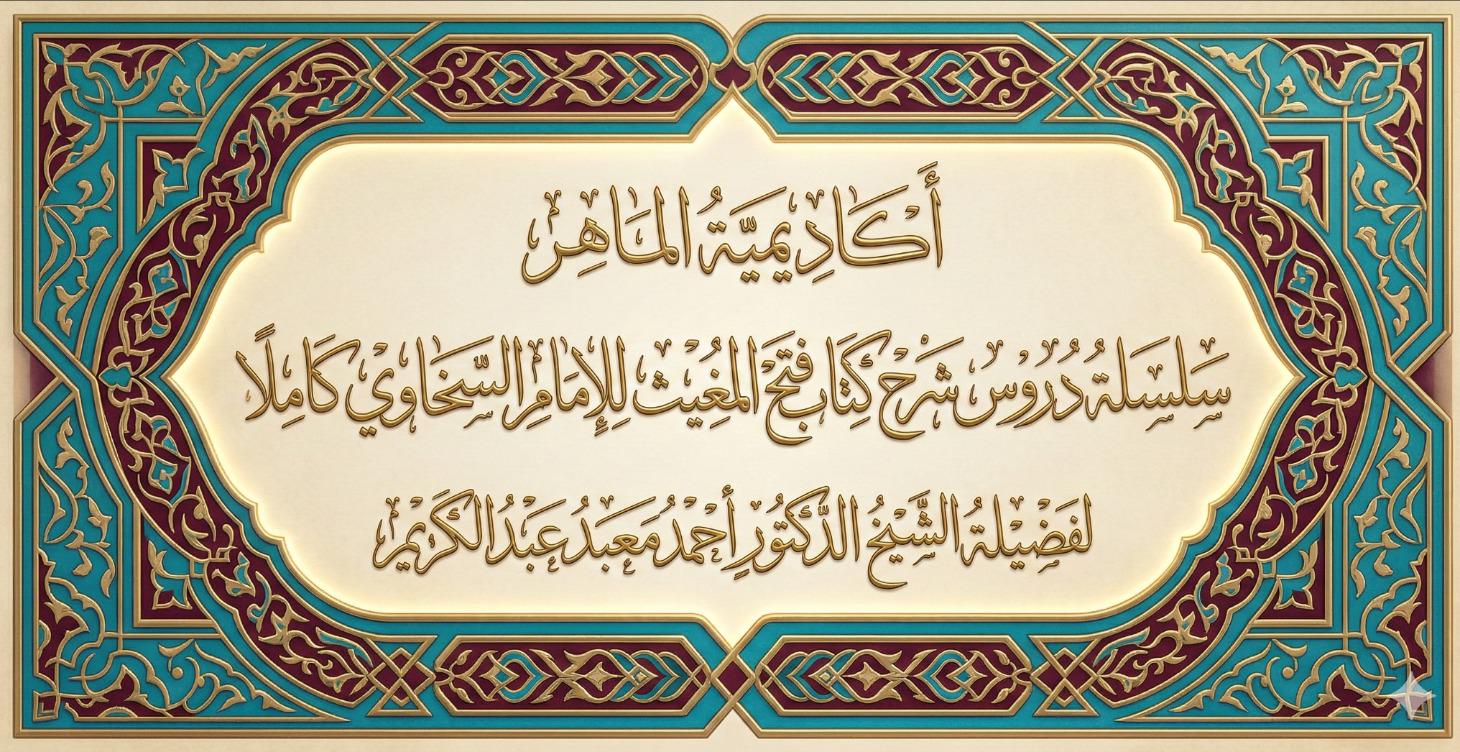 أَكَادِيمِيَّةُ المَاهِر
سَلسَلَةُ دُرُوس شَرْح كِتَاب فَتْحُ المُغِيث لِلإِمَامِ السَّخَاوِي كَامِلًا
لفَضِيلَةُ الشَّيخُ الدَّكتُورِ أَحمَدُ مَعبَدُ عَبدُ الكَرِيم